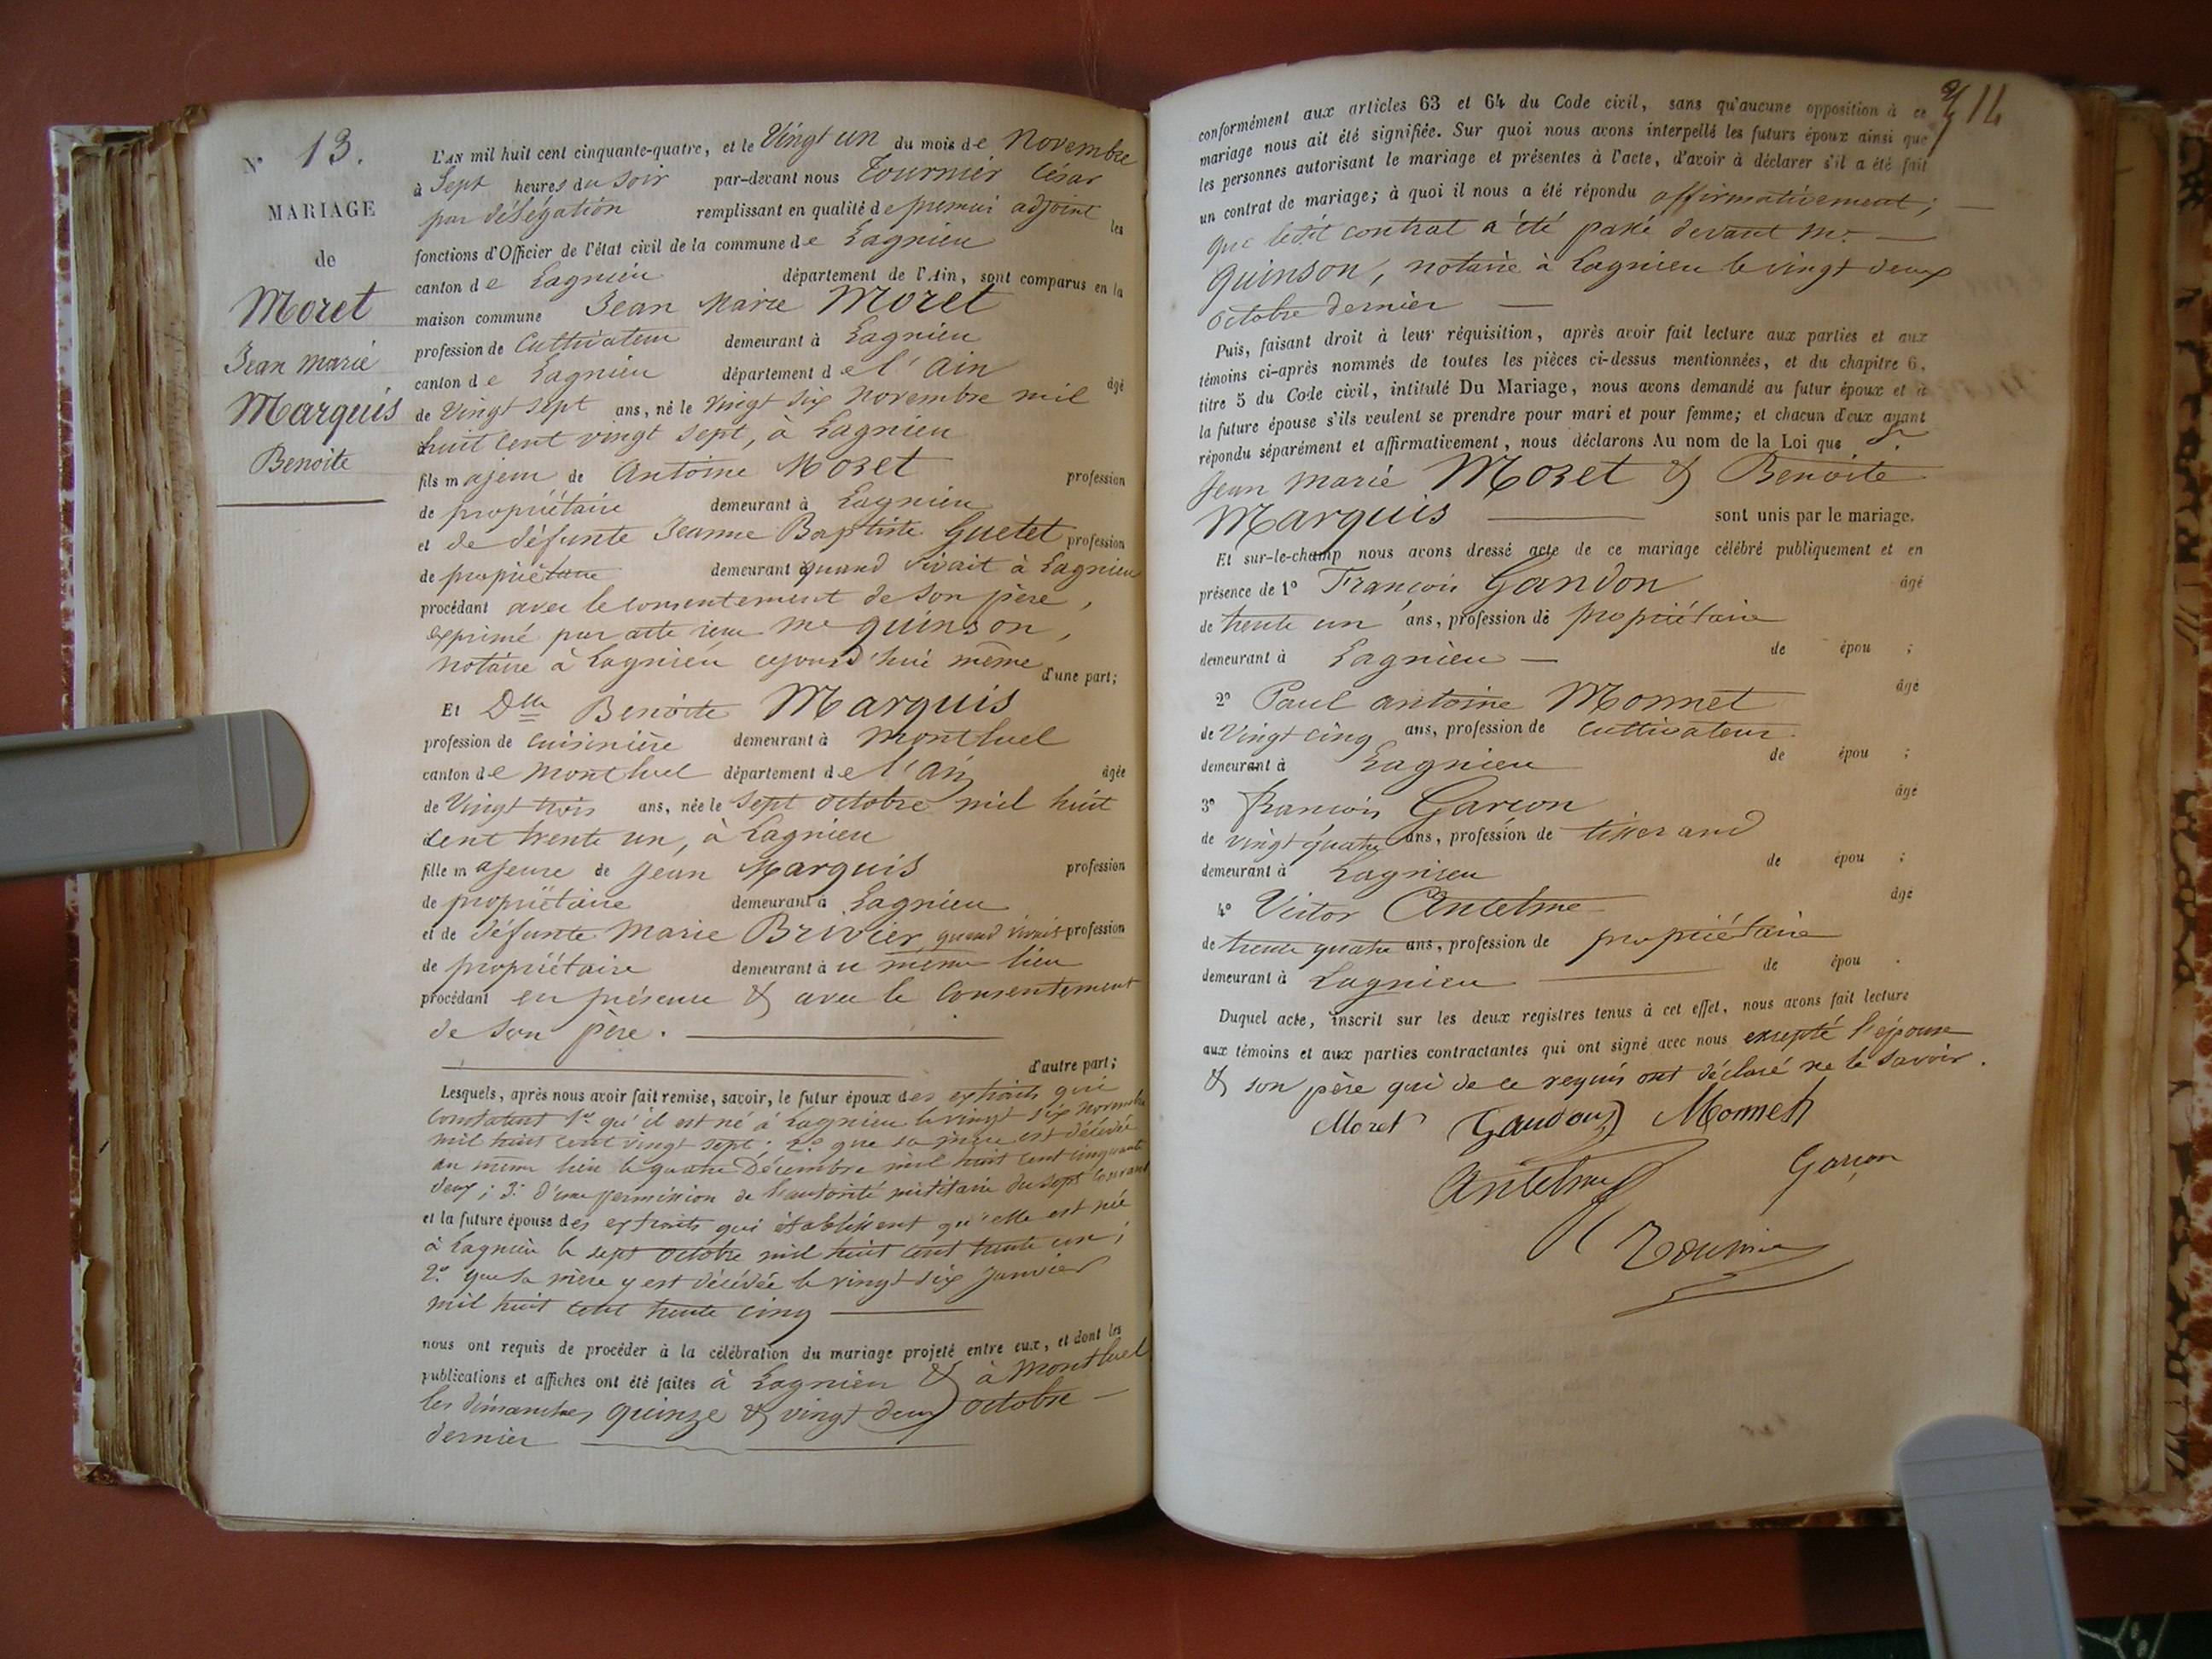 N° 13.
MARIAGE
de
Moret
Jean marie
Marquis
Benoite
L'AN mil huit cent cinquante-quatre, et le Vingt un du mois de Novembre
à Sept heures du Soir par-devant nous Tournier César
par délégation remplissant en qualité de premier adjoint les
fonctions d'Officier de l'état civil de la commune de Lagnieu
canton de Lagnieu département de l'Ain, sont comparus en la
maison commune Jean Marie Moret
profession de Cultivateur demeurant à Lagnieu
canton de Lagnieu département de l'Ain âgé
de Vingt sept ans, né le Vingt six Novembre mil
huit cent vingt sept, à Lagnieu
fils majeur de Antoine Moret profession
de propriétaire demeurant à Lagnieu
et de défunte Jeanne Baptiste Guetet profession
de propriétaire demeurant quand vivait à Lagnieu
procédant avec le consentement de son père,
exprimé par acte reçu Me quinson,
notaire à Lagnieu cejourd'hui même d'une part;
Et Dlle Benoite Marquis
profession de cuisinière demeurant à Montluel
canton de Montluel département de l'Ain âgée
de Vingt trois ans, née le Sept octobre mil huit
cent trente un, à Lagnieu
fille majeure de Jean Marquis profession
de propriétaire demeurant à Lagnieu
et de défunte Marie Brivier quand vivait profession
de propriétaire demeurant à ce même lieu
procédant en présence & avec le Consentement
de son père.
d'autre part;
Lesquels, après nous avoir fait remise, savoir, le futur époux des extraits qui
constatent 1° qu'il est né à Lagnieu le vingt six novembre
mil huit cent vingt sept; 2° que sa mère est décédée
au même lieu le quatre Décembre mil huit cent cinquante
deux; 3° d'une permission de l'autorité militaire du sept courant
et la future épouse des extraits qui établissent qu'elle est née
à Lagnieu le sept octobre mil huit cent trente un;
2° que sa mère y est décédée le vingt six janvier
mil huit cent trente cinq
nous ont requis de procéder à la célébration du mariage projeté entre eux, et dont les
publications et affiches ont été faites à Lagnieu & à Montluel
les dimanches quinze & vingt deux octobre
dernier
14
conformément aux articles 63 et 64 du Code civil, sans qu'aucune opposition à ce
mariage nous ait été signifiée. Sur quoi nous avons interpellé les futurs époux ainsi que
les personnes autorisant le mariage et présentes à l'acte, d'avoir à déclarer s'il a été fait
un contrat de mariage; à quoi il nous a été répondu affirmativement;
que ledit contrat a été passé devant Me
quinson, notaire à Lagnieu le vingt deux
octobre dernier
Puis, faisant droit à leur réquisition, après avoir fait lecture aux parties et aux
témoins ci-après nommés de toutes les pièces ci-dessus mentionnées, et du chapitre 6,
titre 5 du Code civil, intitulé Du Mariage, nous avons demandé au futur époux et à
la future épouse s'ils veulent se prendre pour mari et pour femme; et chacun d'eux ayant
répondu séparément et affirmativement, nous déclarons Au nom de la Loi que
Jean Marie Moret & Benoite
Marquis sont unis par le mariage.
Et sur-le-champ nous avons dressé acte de ce mariage célébré publiquement et en
présence de 1° François Gandon âgé
de trente un ans, profession de propriétaire
demeurant à Lagnieu de épou ;
2° Paul antoine Monnet âgé
de Vingt cinq ans, profession de cultivateur
demeurant à Lagnieu de épou ;
3° François Garçon âgé
de vingt quatre ans, profession de tisserand
demeurant à Lagnieu de épou ;
4° Victor Antelme âgé
de trente quatre ans, profession de propriétaire
demeurant à Lagnieu de épou .
Duquel acte, inscrit sur les deux registres tenus à cet effet, nous avons fait lecture
aux témoins et aux parties contractantes qui ont signé avec nous excepté l'épouse
& son père qui de ce requis ont déclaré ne le savoir.
Moret Gandon Monnet
Antelme Garçon
Tournier